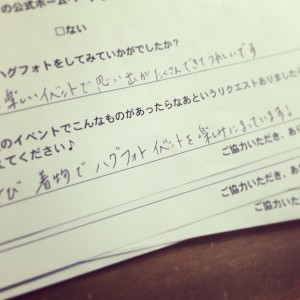 の公式ホームペ
□ない
ハグフォトをしてみていかがでしたか?
楽しいイベントで思い出がたくさんできてうれしいです
のイベントでこんなものがあったらなあというリクエストありました
えてください♪
び 着物で ハグフォトイベントを楽しみにまっています!
ご協力いただき、あ
ご協力いただき、あ
ご協力いただき、あ